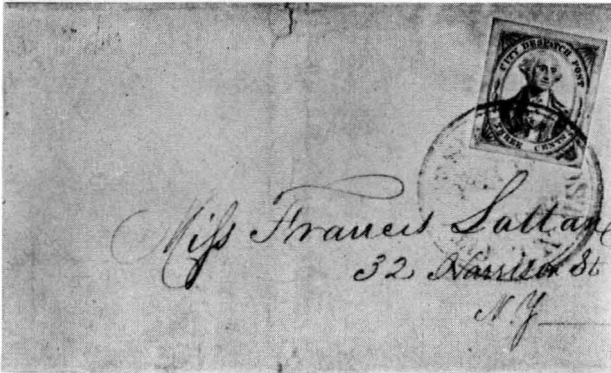 CITY DESPATCH POST
THREE CENTS
Miss Francis
32 Harrison St
N.Y